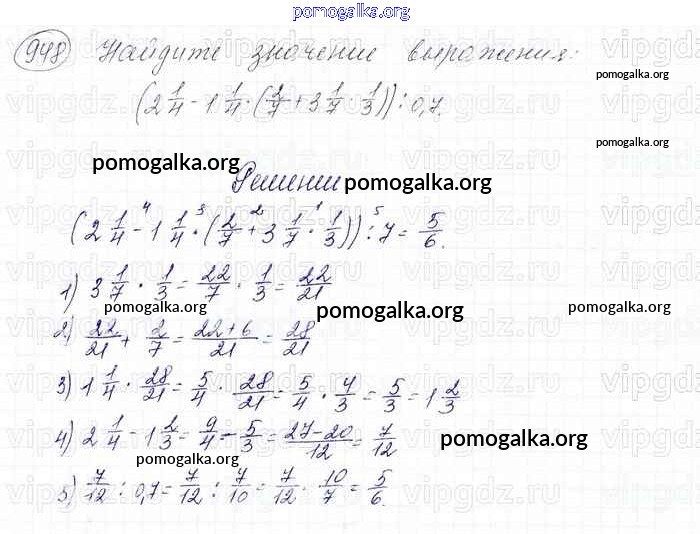 pomogalka.org
948 Найдите значение выражения:
pomogalka.org
(2 1/4 - 1 1/4 · (2/7 + 3 1/7 · 1/3)) : 0,7.
pomogalka.org
pomogalka.org
Решение
pomogalka.org
(2 1/4 -⁴ 1 1/4 ·³ (2/7 +² 3 1/7 ·¹ 1/3)) :⁵ 7 = 5/6.
1) 3 1/7 · 1/3 = 22/7 · 1/3 = 22/21
pomogalka.org pomogalka.org pomogalka.org
2) 22/21 + 2/7 = (22+6)/21 = 28/21
3) 1 1/4 · 28/21 = 5/4 · 28/21 = 5/4 · 4/3 = 5/3 = 1 2/3
pomogalka.org
4) 2 1/4 - 1 2/3 = 9/4 - 5/3 = (27-20)/12 = 7/12
pomogalka.org
pomogalka.org
5) 7/12 : 0,7 = 7/12 : 7/10 = 7/12 · 10/7 = 5/6.